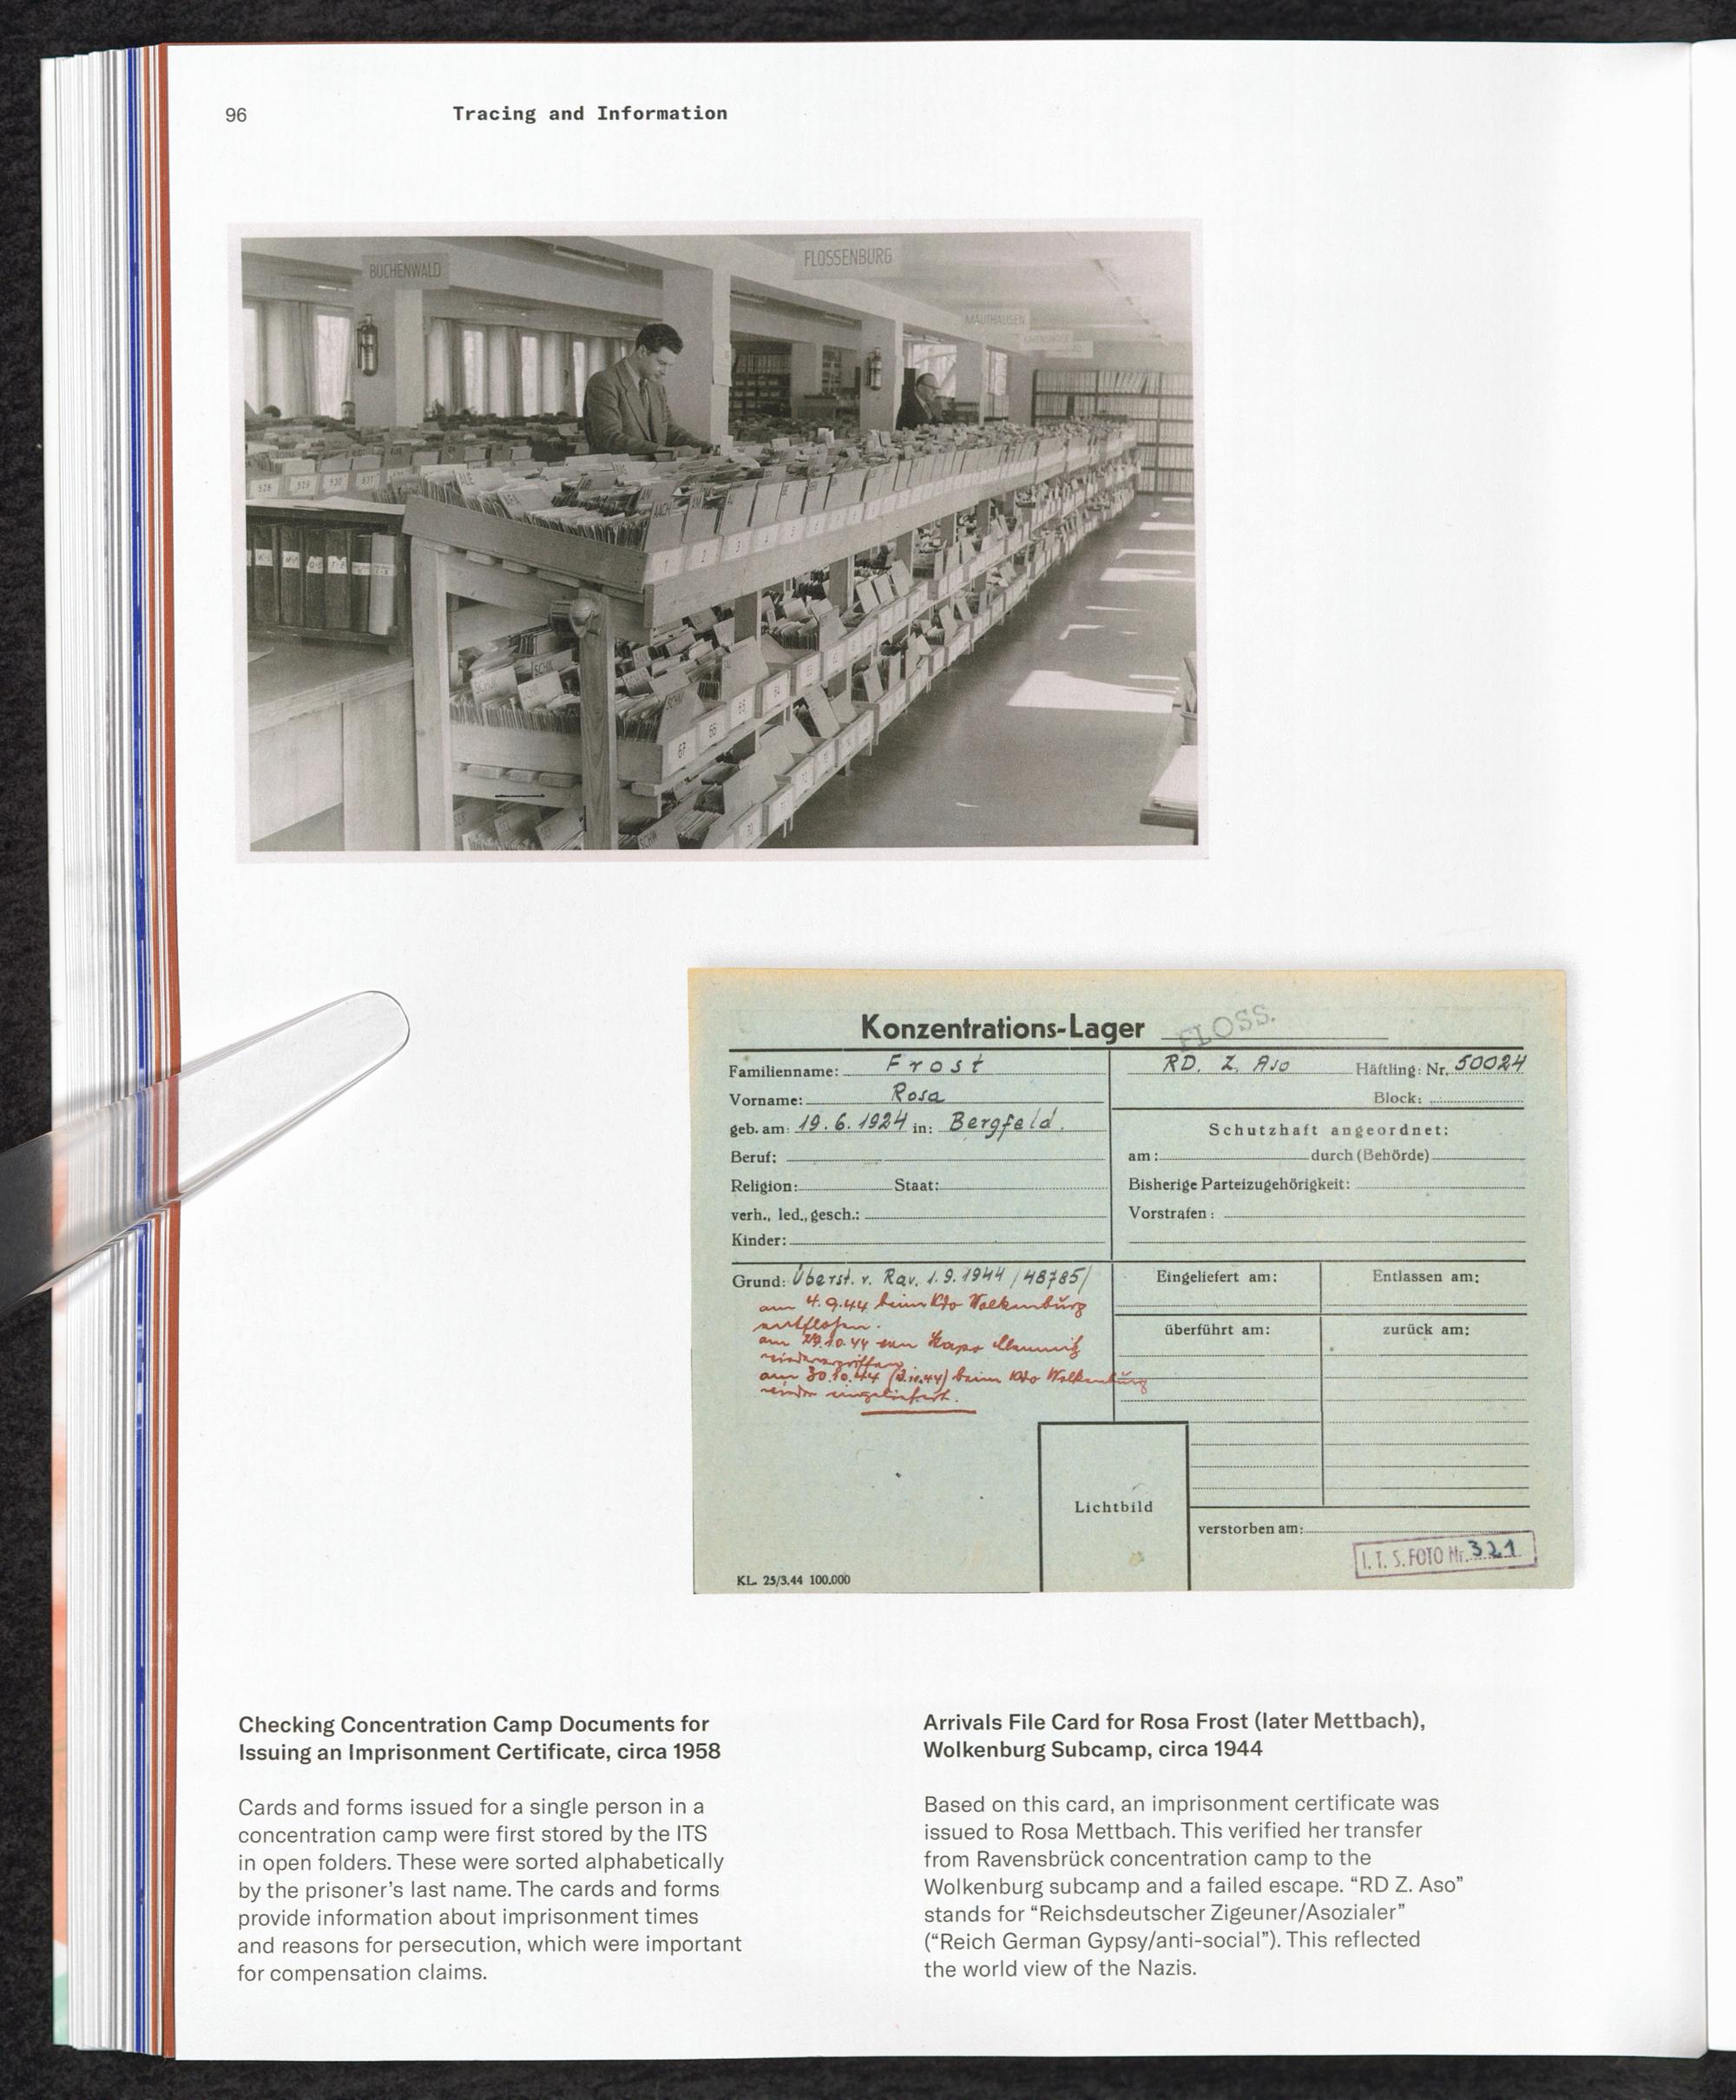 96
Tracing and Information
BUCHENWALD
FLOSSENBURG
MAUTHAUSEN
528 529 530 531
ALE
AACH
1 2 3 4 5 6
SCHA
67 66 65 64
70
Konzentrations-Lager
FLOSS.
Familienname: Frost
Vorname: Rosa
geb. am: 19.6.1924 in: Bergfeld.
Beruf:
Religion: Staat:
verh., led., gesch.:
Kinder:
RD. Z. Aso Häftling: Nr. 50024
Block:
Schutzhaft angeordnet:
am: durch (Behörde)
Bisherige Parteizugehörigkeit:
Vorstrafen:
Grund: Überst. v. Rav. 1.9.1944 /48785/
am 4.9.44 beim Kdo Wolkenburg
entflohen.
am 29.10.44 von Kapo
wiederergriffen
am 30.10.44 (2.11.44) beim Kdo Wolkenburg
wieder eingeliefert.
Eingeliefert am: Entlassen am:
überführt am: zurück am:
Lichtbild
verstorben am:
I. T. S. FOTO Nr. 321
KL. 25/3.44 100.000
Checking Concentration Camp Documents for
Issuing an Imprisonment Certificate, circa 1958
Cards and forms issued for a single person in a
concentration camp were first stored by the ITS
in open folders. These were sorted alphabetically
by the prisoner’s last name. The cards and forms
provide information about imprisonment times
and reasons for persecution, which were important
for compensation claims.
Arrivals File Card for Rosa Frost (later Mettbach),
Wolkenburg Subcamp, circa 1944
Based on this card, an imprisonment certificate was
issued to Rosa Mettbach. This verified her transfer
from Ravensbrück concentration camp to the
Wolkenburg subcamp and a failed escape. “RD Z. Aso”
stands for “Reichsdeutscher Zigeuner/Asozialer”
(“Reich German Gypsy/anti-social”). This reflected
the world view of the Nazis.